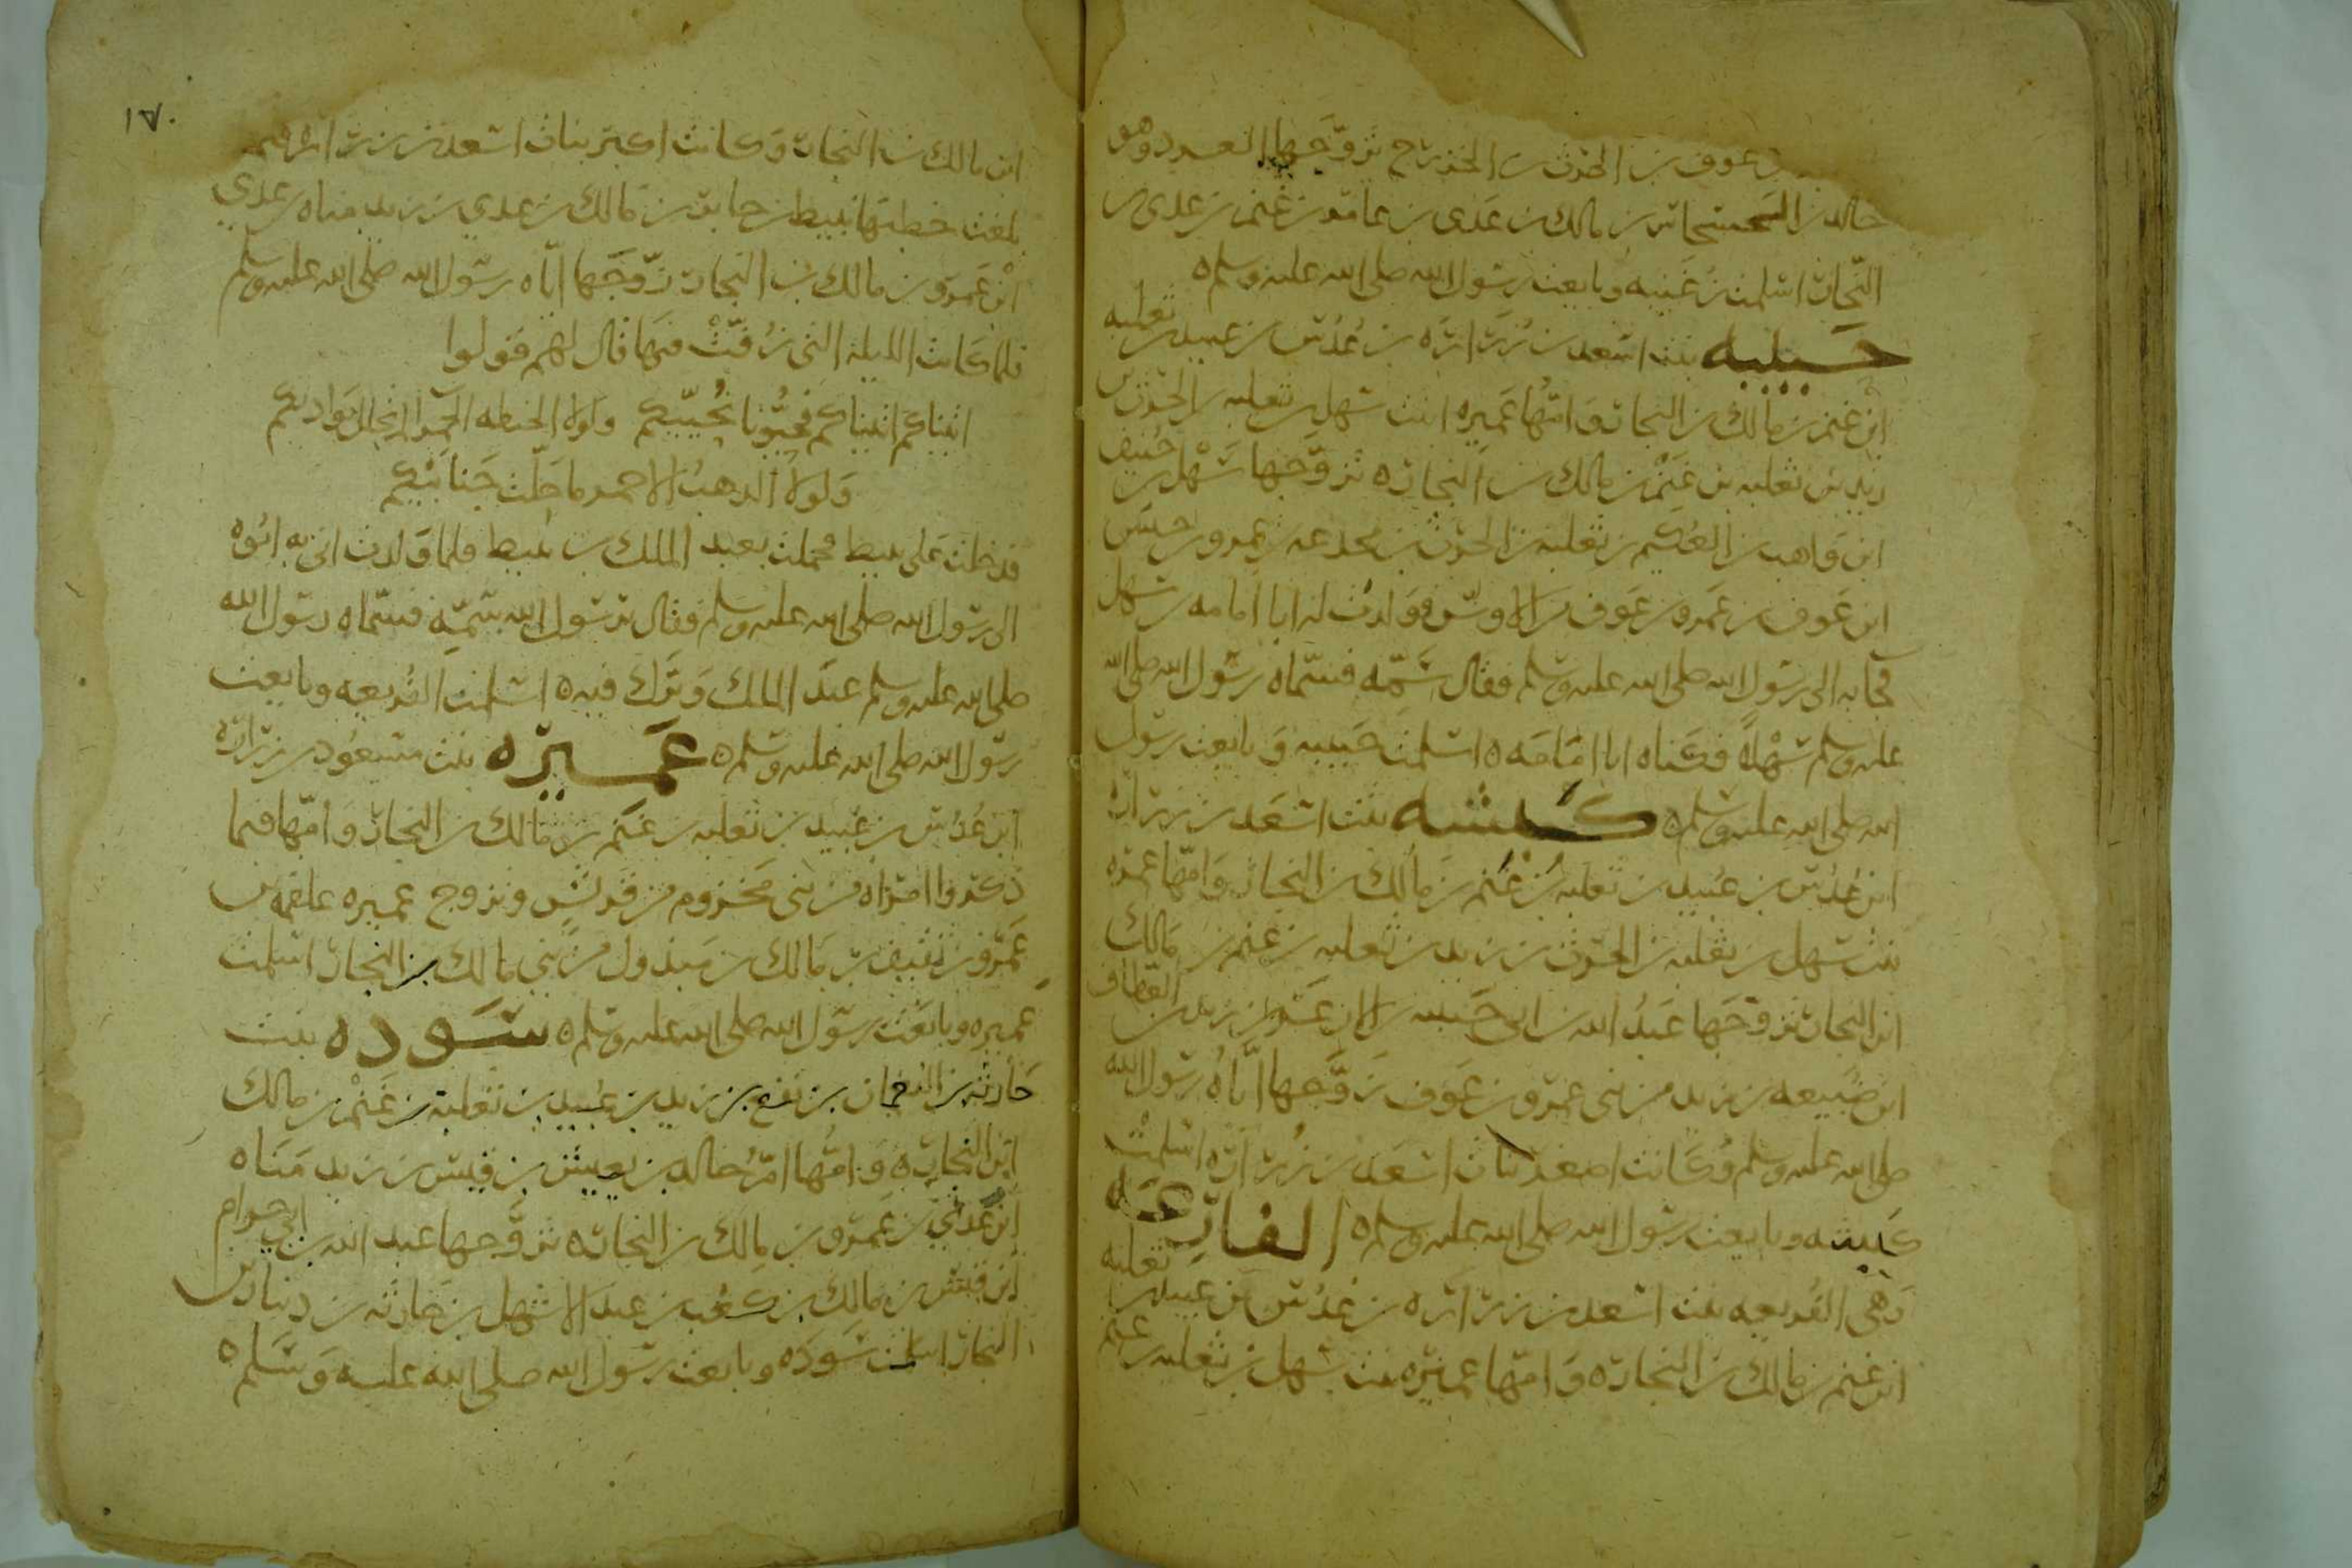 بن عوف بن الحرث بن الخزرج تزوجها العمرد وهو
خالد بن الحسحاس بن مالك بن عدي بن عامر بن غنم بن عدي بن
النجار اسلمت عتبه وبايعت رسول الله صلى الله عليه وسلم ه
حبيبه بنت اسعد بن زرارة بن عدس بن عبيد بن ثعلبه
ابن غنم بن مالك بن النجار وامها عميره ابنت سهل بن ثعلبه بن الحرث بن
زيد بن ثعلبه بن غنم بن مالك بن النجار ه تزوجها سهل بن حنيف
ابن واهب بن العكيم بن ثعلبه بن الحرث بن مجدعه بن عمرو بن حبيش
ابن عوف بن عمرو بن عوف بن الاوس ه وولدت له ابا امامه بن سهل
فجابه الى رسول الله صلى الله عليه وسلم فقال سمه فسماه رسول الله صلى الله
عليه وسلم سهلا فكناه ابا امامه ه اسلمت حبيبه وبايعت رسول
الله صلى الله عليه وسلم ه كبشه بنت اسعد بن زرارة
ابن عدس بن عبيد بن ثعلبه بن غنم بن مالك بن النجار وامها عميره
بنت سهل بن ثعلبه بن الحرث بن زيد بن ثعلبه بن غنم بن مالك
ابن النجار تزوجها عبد الله بن ابي حبيبه بن الازعر بن زيد بن العطاف
ابن ضبيعه بن زيد من بني عمرو بن عوف زوجها اياه رسول الله
صلى الله عليه وسلم وكانت اصغر بنات اسعد بن زرارة اسلمت
كبشه وبايعت رسول الله صلى الله عليه وسلم ه الفارعه
وهي الفريعه بنت اسعد بن زرارة بن عدس بن عبيد بن ثعلبه
ابن غنم بن مالك بن النجار ه وامها عميره بنت سهل بن ثعلبه بن غنم
١٧٠
ابن مالك بن النجار وكانت اكبر بنات اسعد بن زرارة
بلغت خطبها نبيط بن جابر بن مالك بن عدي بن زيد مناه بن عدي
ابن عمرو بن مالك بن النجار زوجها اياه رسول الله صلى الله عليه وسلم
فلما كانت الليلة التي زفت فيها قال لهم قولوا
اتيناكم اتيناكم فحيونا نحييكم ولولا الحنطه الحمرا لم نحلل بواديكم
ولولا الذهب الاحمر ما حلت جنابيكم
فدخلت على نبيط فحملت بعبد الملك بن نبيط فلما ولدت اتى به ابوه
الى رسول الله صلى الله عليه وسلم فقال يرسول الله سمه فسماه رسول الله
صلى الله عليه وسلم عبد الملك وبرك فيه ه اسلمت الفريعه وبايعت
رسول الله صلى الله عليه وسلم ه عميره بنت مسعود بن زرارة
ابن عدس بن عبيد بن ثعلبه بن غنم بن مالك بن النجار وامها فيما
ذكروا امراه من بني مخزوم من قريش وتزوج عميره علقمه بن
عمرو بن ثقيف بن مالك بن مبذول من بني مالك بن النجار اسلمت
عميره وبايعت رسول الله صلى الله عليه وسلم ه سوده بنت
حارثه بن النعمان بن نفع بن زيد بن عبيد بن ثعلبه بن غنم بن مالك
ابن النجار ه وامها ام خالد بن يعيش بن قيس بن زيد مناه
ابن عدي بن عمرو بن مالك بن النجار ه تزوجها عبد الله بن ابي حرام
ابن قيس بن مالك بن كعب بن عبد الاشهل بن حارثه بن دينار بن
النجار اسلمت سوده وبايعت رسول الله صلى الله عليه وسلم ه